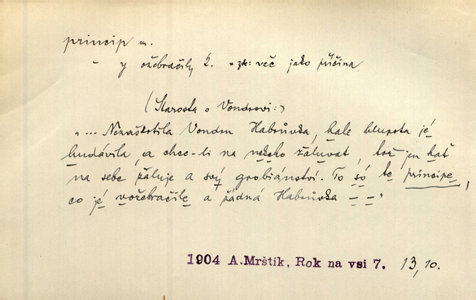 princip m.
– y ožebračily 2. ozn: věc jako příčina
(Starosta o Vondrovi:)
„... Nezaškrtila Vondru Habrůvka, hale hlupota jé
hudávila, a chce-li na nekeho žaluvat, tož jen hať
na sebe žaluje a svý grobiánství. To só te principe,
co jé vožebračile a žádná Habrůvka – – "
1904 A. Mrštík, Rok na vsi 7. 13, 10.